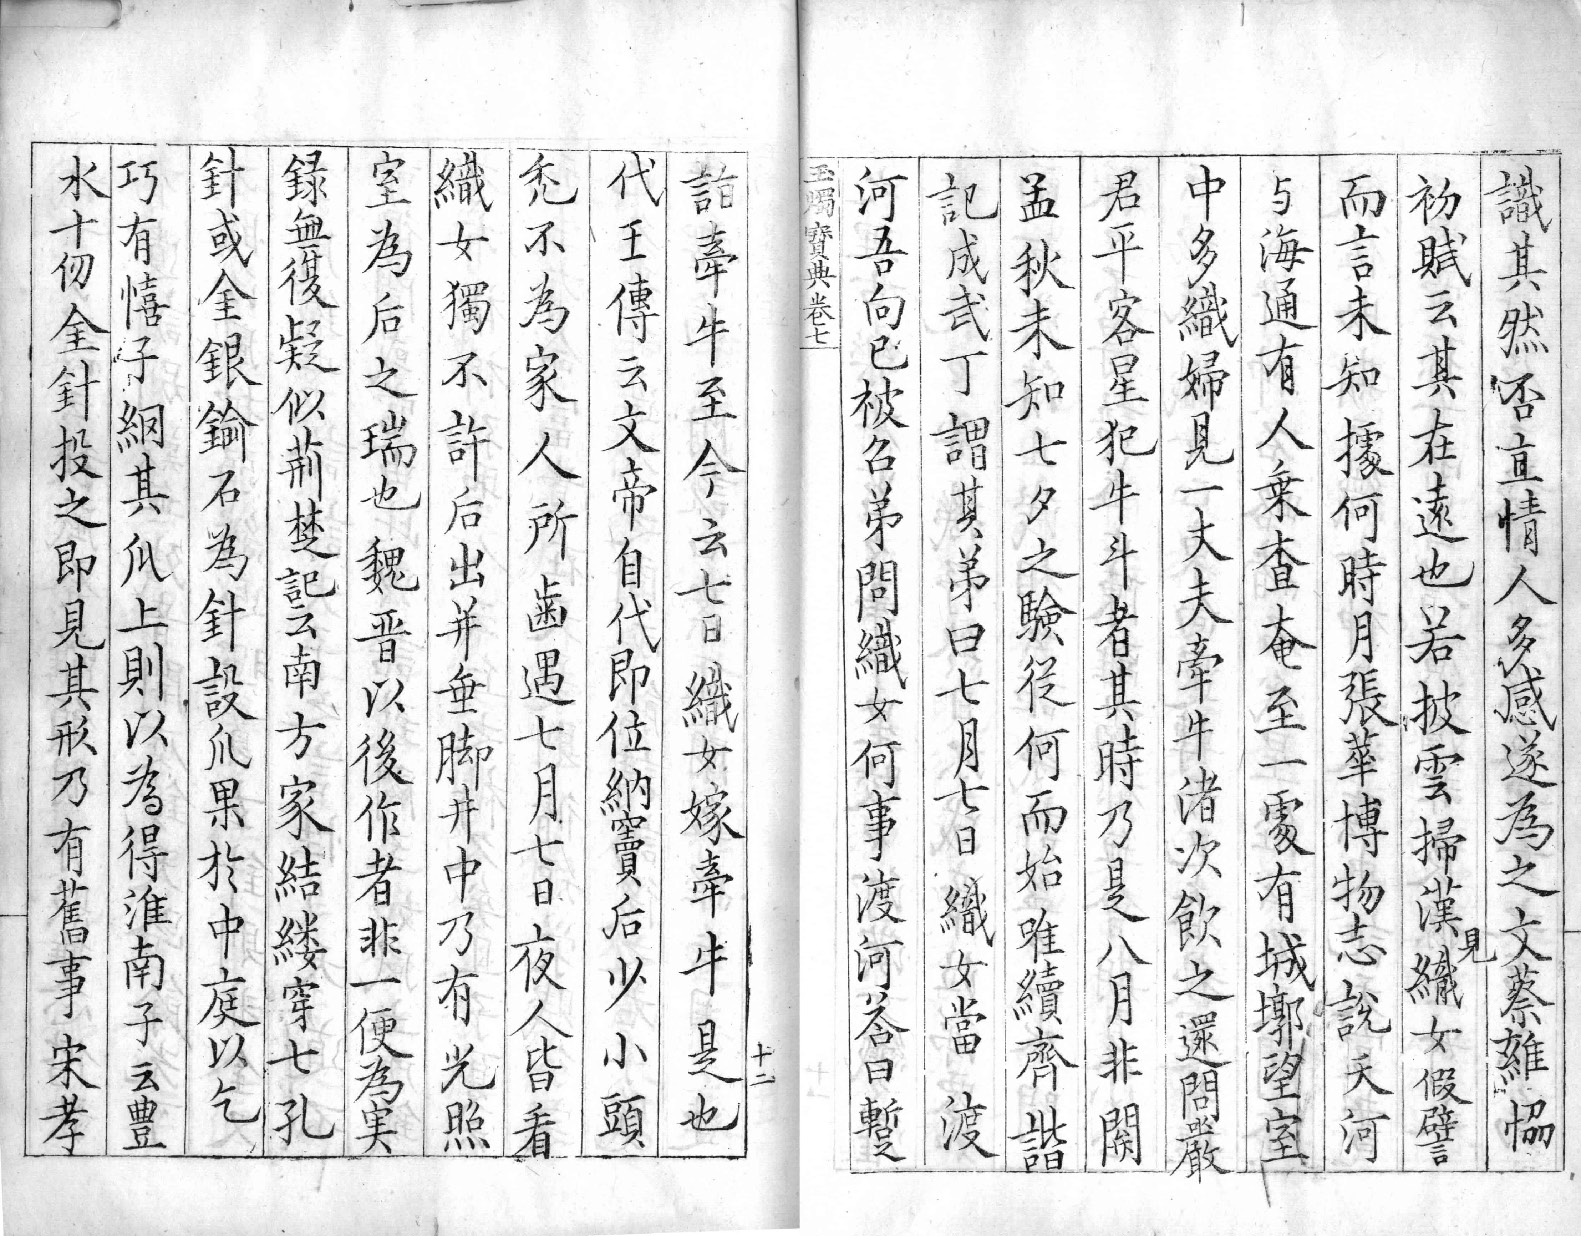 識其然否直情人多感遂為之文蔡雝恊
初賦云其在遠也若披雲掃漢見織女假譬
而言未知據何時月張華博物志說天河
与海通有人乗查奄至一䖏有城墎望室
中多織婦見一丈夫牽牛渚次飲之還問嚴
君平客星犯牛斗者其時乃是八月非関
孟秋未知七夕之驗從何而始唯續齊諧
記成武丁謂其弟曰七月七日織女當渡
河吾向已被召弟問織女何事渡河荅曰蹔
玉燭寶典卷七
十二
詣牽牛至今云七日織女嫁牽牛是也
代王傳云文帝自代即位納竇后少小頭
禿不為家人所齒遇七月七日夜人皆看
織女獨不許后出并垂脚井中乃有光照
室為后之瑞也魏晋以後作者非一便為実
録無復疑似荊楚記云南方家結縷穿七孔
針或金銀鍮石為針設瓜果於中庭以乞
巧有憘子網其瓜上則以為得淮南子云豊
水十仞金針投之即見其形乃有舊事宋孝